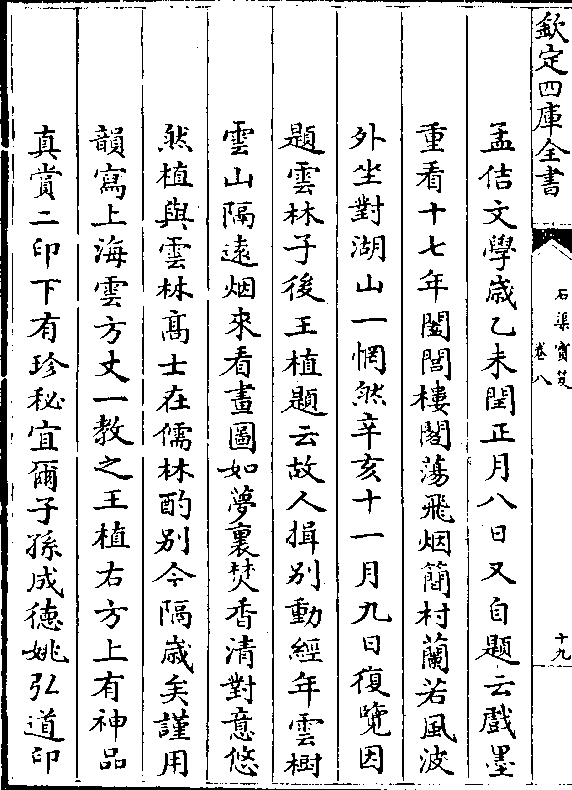 欽定四庫全書
石渠寶笈
卷八
十九
孟佶文學歲乙未閏正月八日又自題云戲墨
重看十七年閶閭樓閣蕩飛烟簡村蘭若風波
外坐對湖山一惘然辛亥十一月九日復覽因
題雲林子後王植題云故人揖别動經年雲樹
雲山隔遠烟來看畫圖如夢裏焚香清對意悠
然植與雲林髙士在儒林酌别今隔歲矣謹用
韻寫上海雲方丈一教之王植右方上有神品
真賞二印下有珍秘宜爾子孫成德姚弘道印